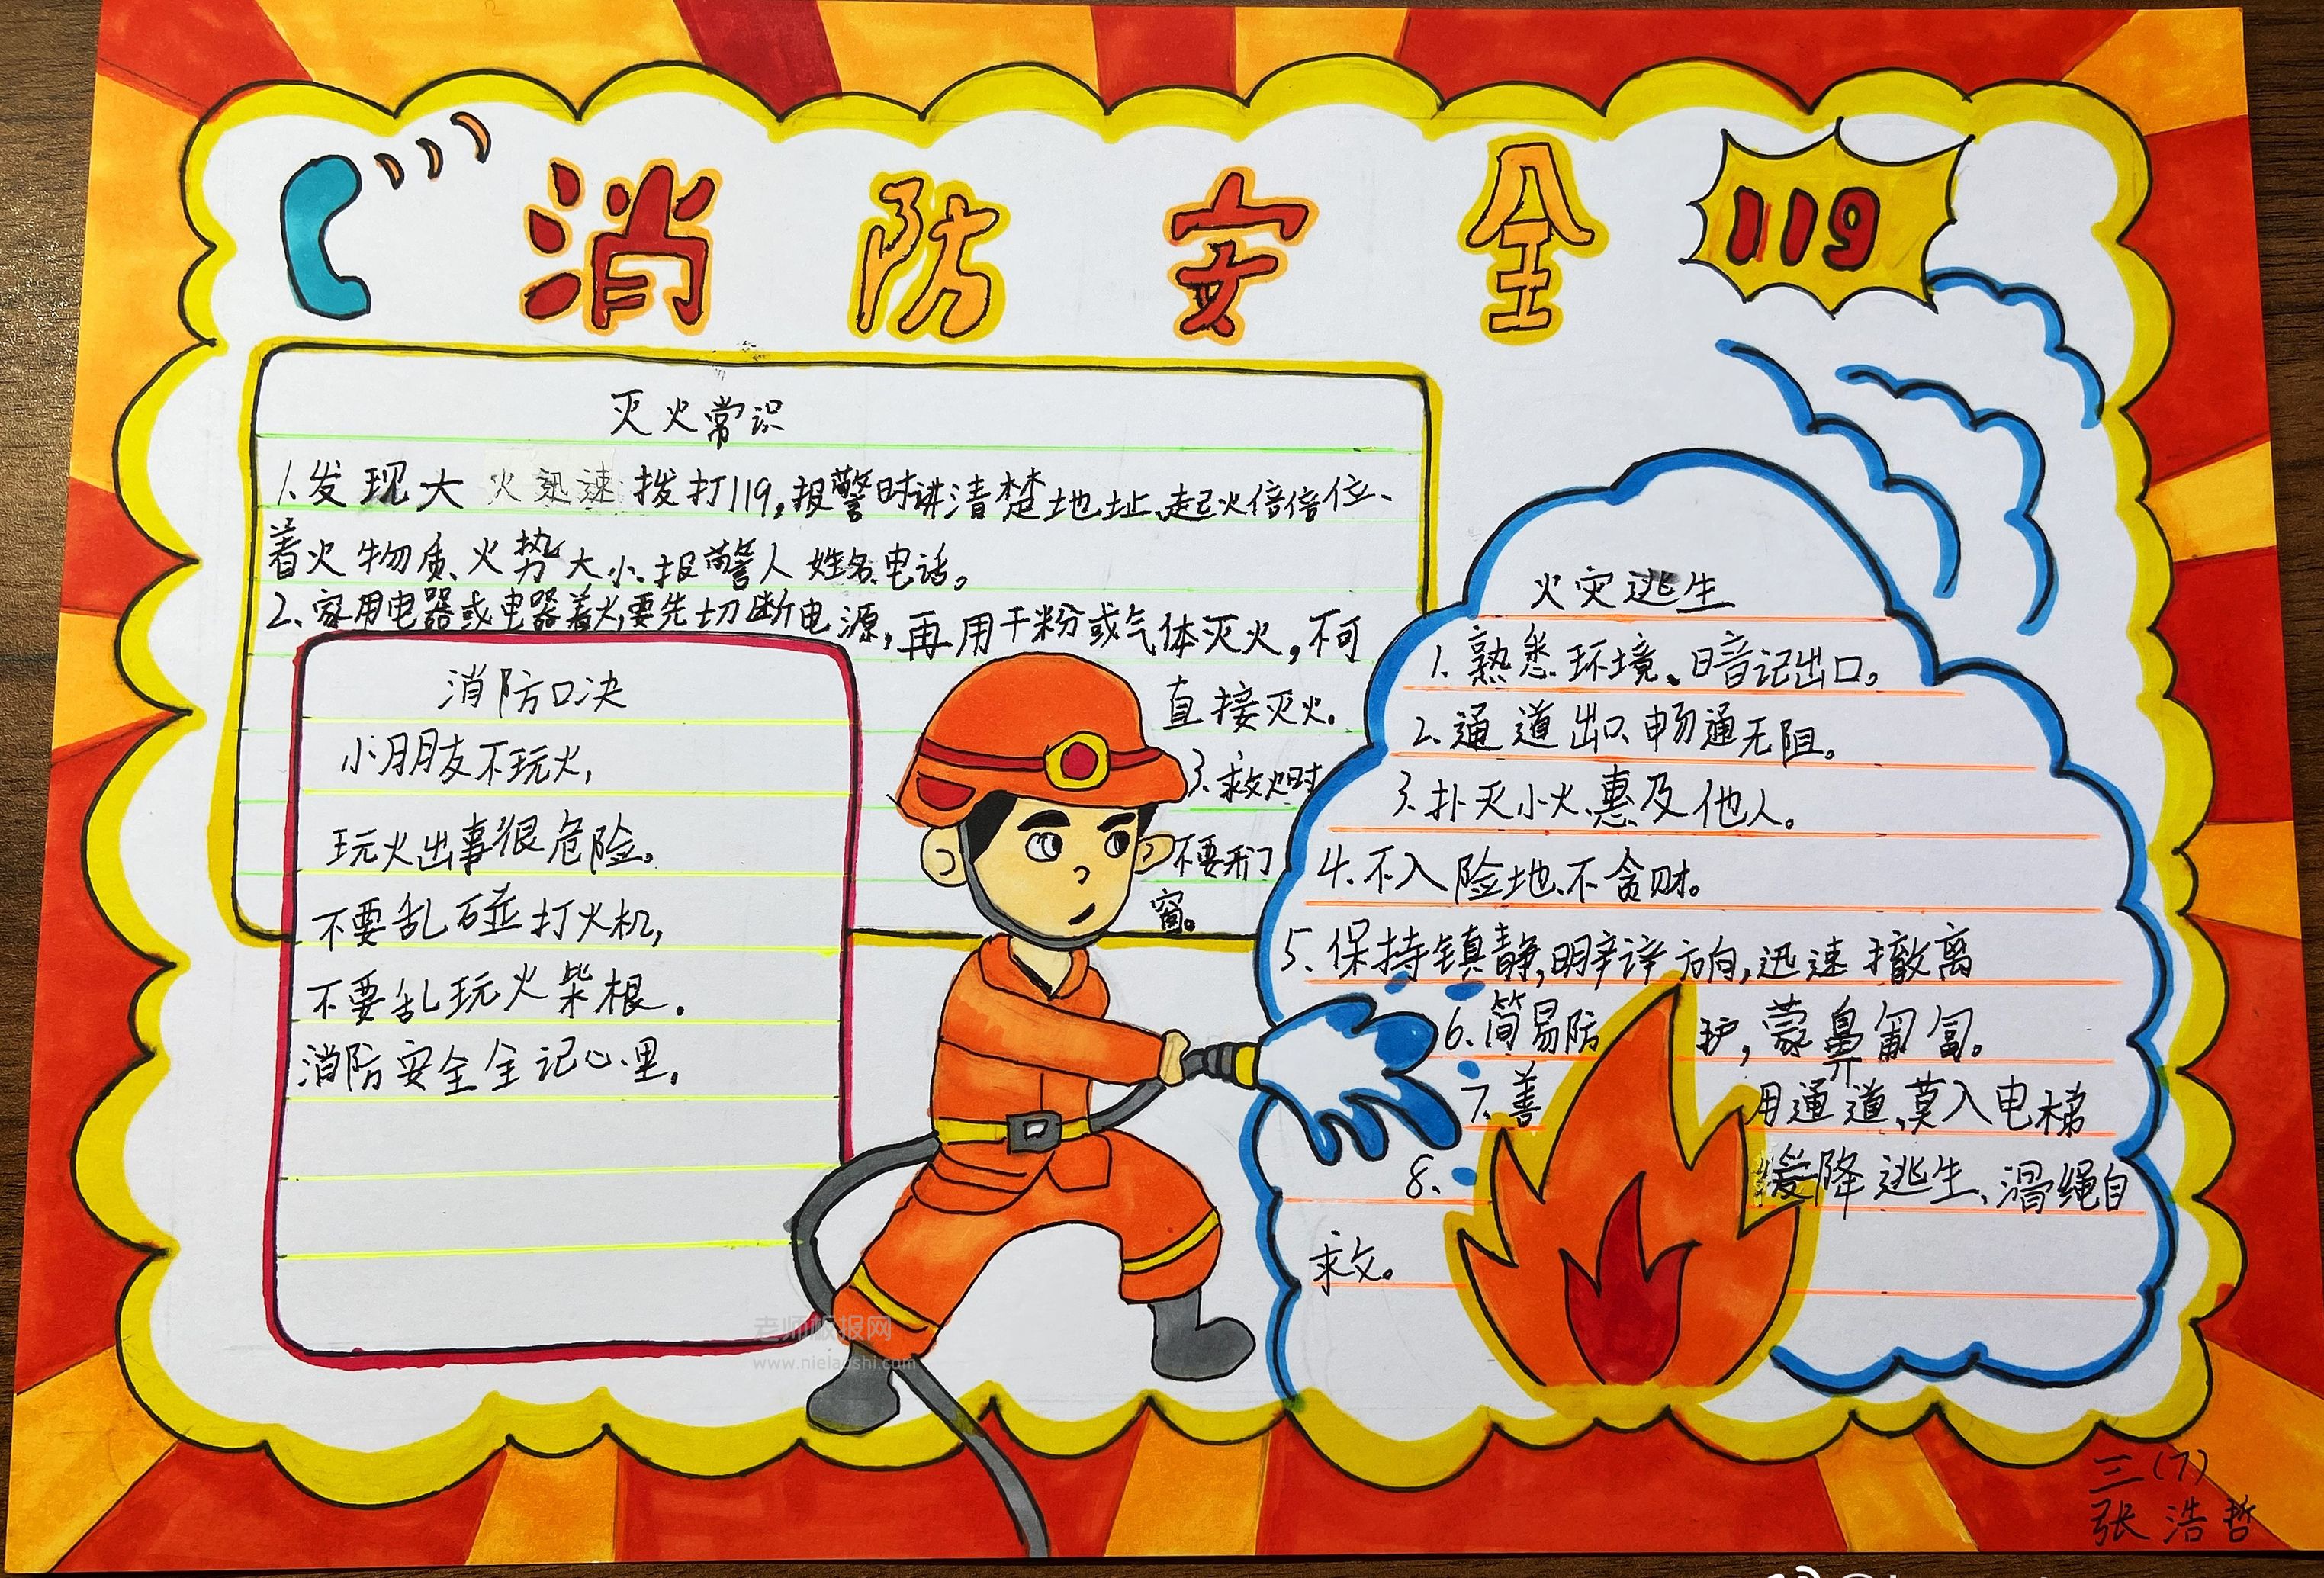 消防安全
119
灭火常识
1、发现大火迅速拨打119,报警时讲清楚地址、起火倍倍位、
着火物质、火势大小、报警人姓名、电话。
2、家用电器或电器着火,要先切断电源,再用干粉或气体灭火,不可
直接灭火。
3、救火时
不要开门
窗。
消防口决
小朋朋友不玩火,
玩火出事很危险。
不要乱碰打火机,
不要乱玩火柴根。
消防安全全记心里,
火灾逃生
1、熟悉环境、暗记出口。
2、通道出口、畅通无阻。
3、扑灭小火、惠及他人。
4、不入险地、不贪财。
5、保持镇静,明辛辩方向,迅速撤离
6、简易防护,蒙鼻匍匐。
7、善用通道、莫入电梯
8、缓降逃生、滑绳自
求文。
三(7)
张浩哲
老师板报网
www.nielaoshi.com